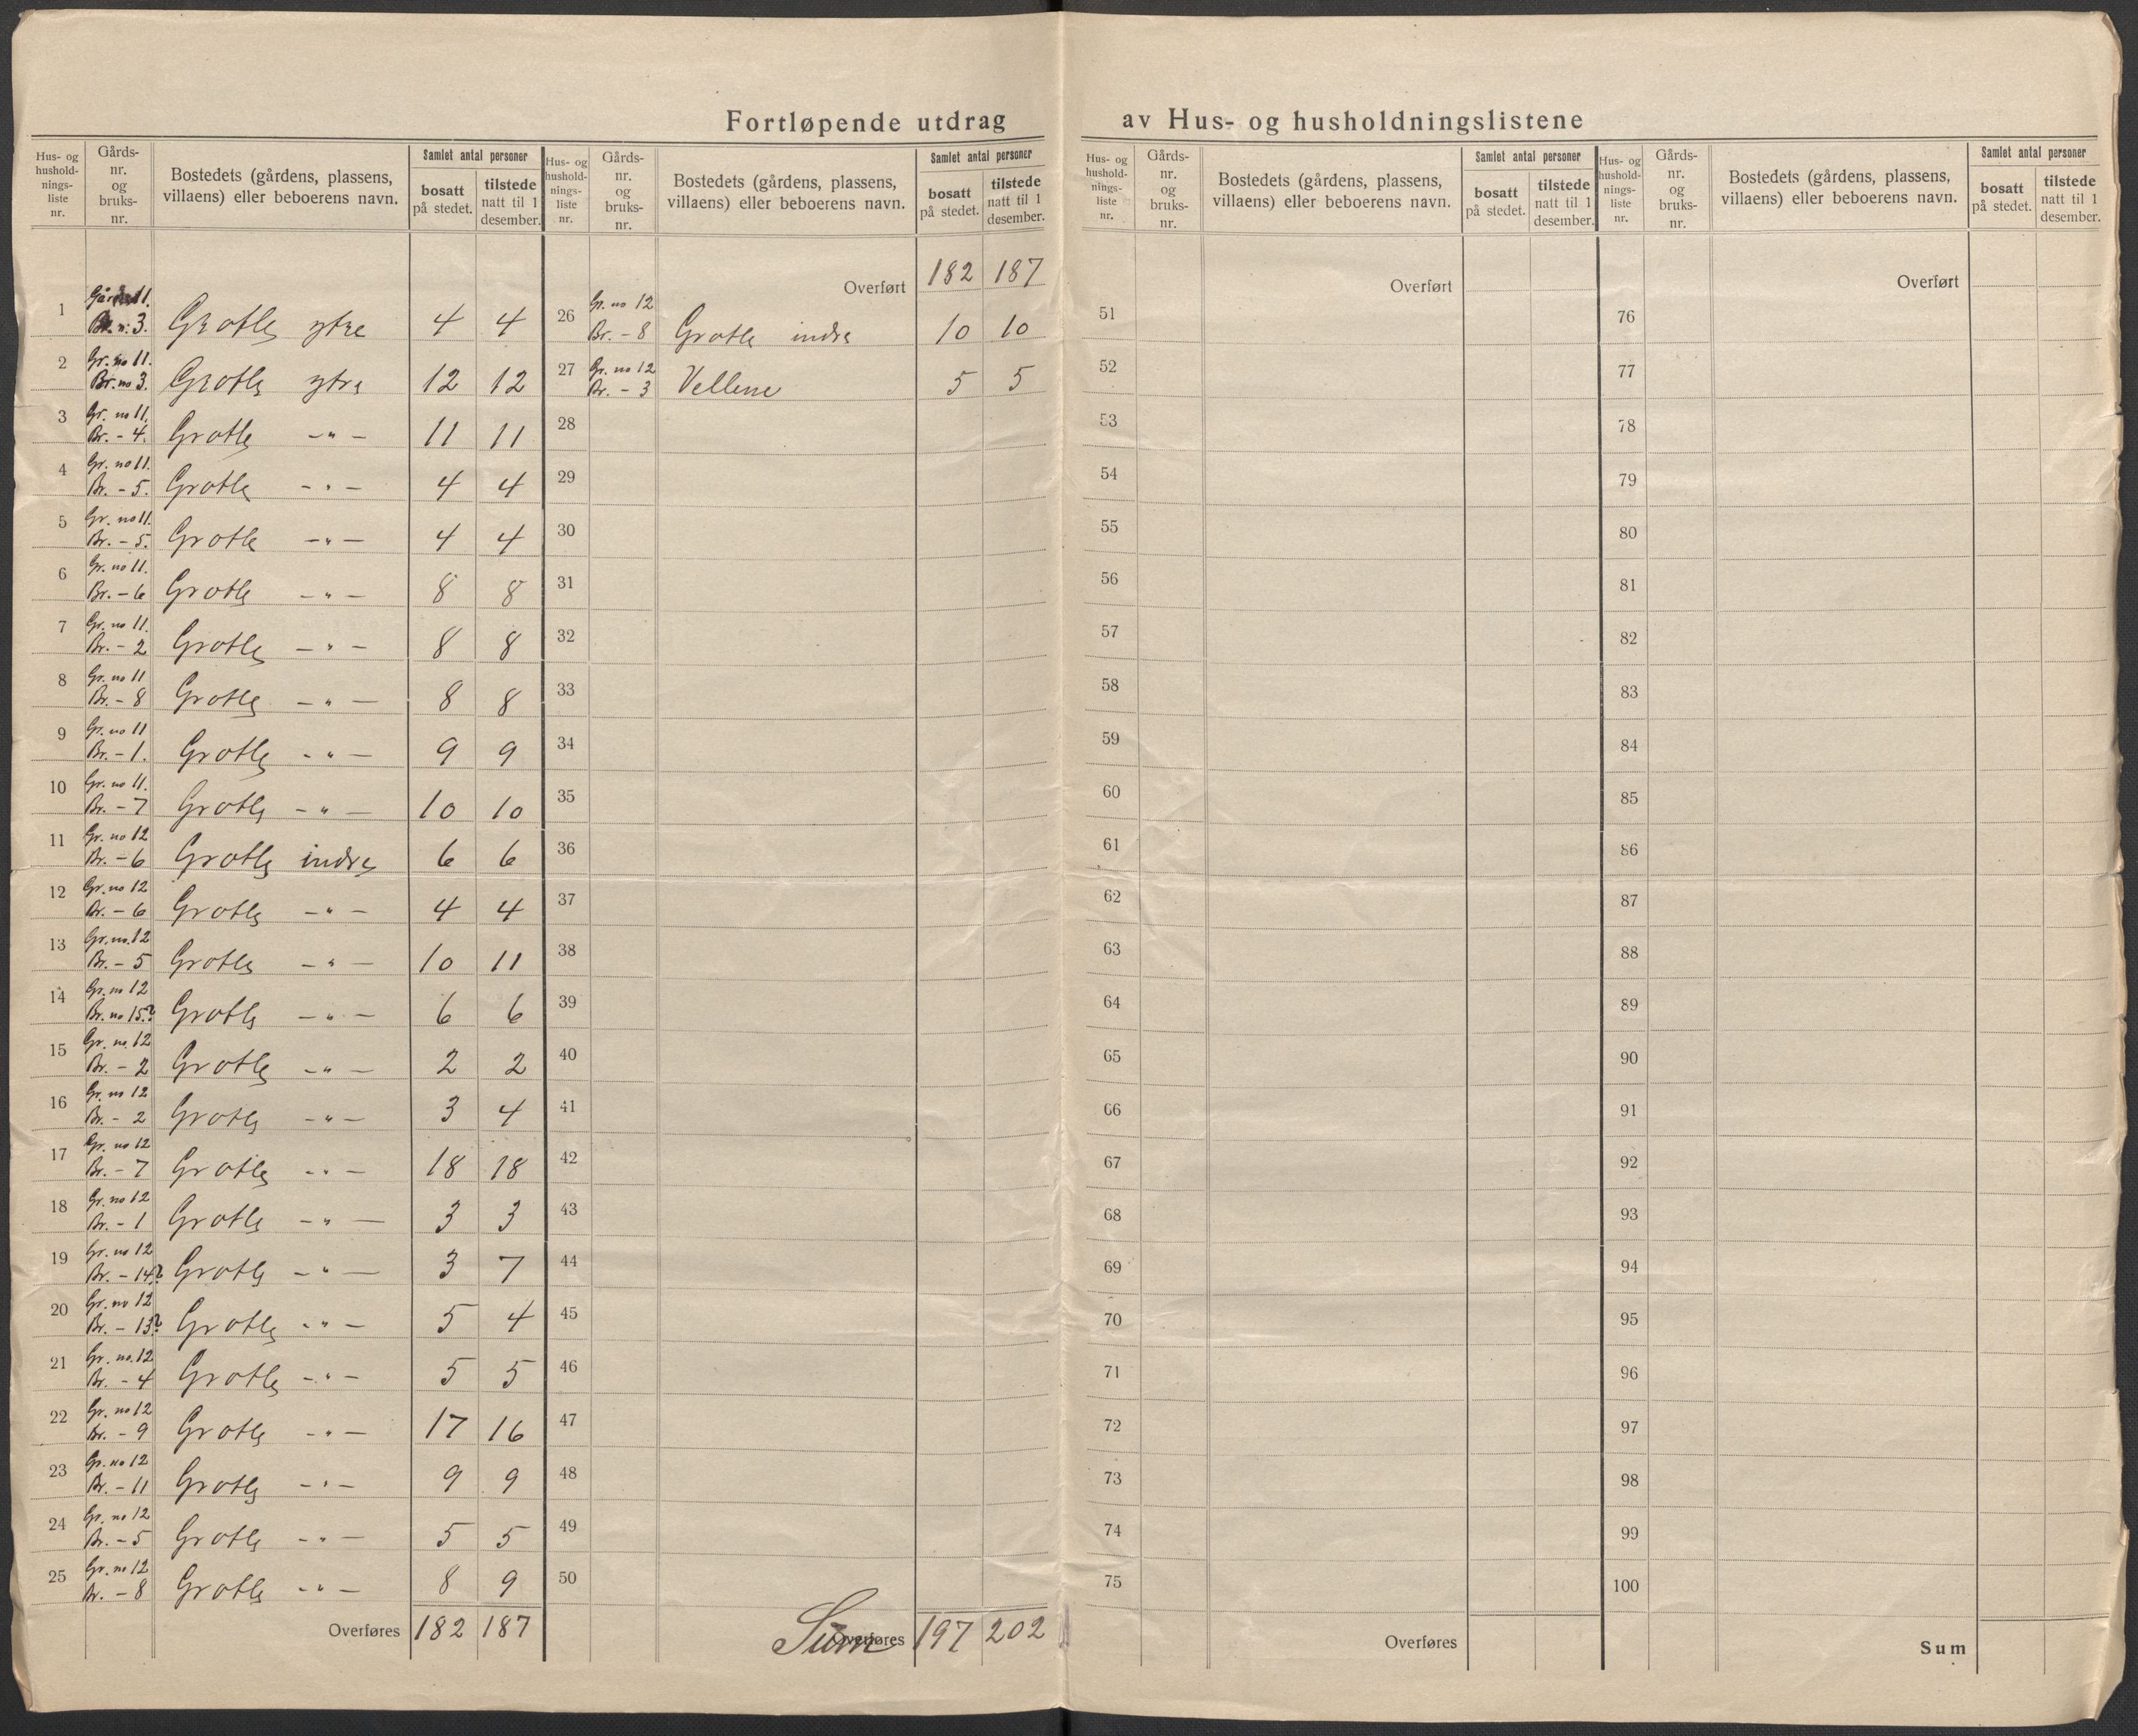 Fortløpende utdrag av Hus- og husholdningslistene
Hus- og hushold-nings-liste nr. Gårds-nr. og bruks-nr. Bostedets (gårdens, plassens, villaens) eller beboerens navn. Samlet antal personer bosatt på stedet. tilstede natt til 1 desember.
Hus- og hushold-nings-liste nr. Gårds-nr. og bruks-nr. Bostedets (gårdens, plassens, villaens) eller beboerens navn. Samlet antal personer bosatt på stedet. tilstede natt til 1 desember.
Hus- og hushold-nings-liste nr. Gårds-nr. og bruks-nr. Bostedets (gårdens, plassens, villaens) eller beboerens navn. Samlet antal personer bosatt på stedet. tilstede natt til 1 desember.
Hus- og hushold-nings-liste nr. Gårds-nr. og bruks-nr. Bostedets (gårdens, plassens, villaens) eller beboerens navn. Samlet antal personer bosatt på stedet. tilstede natt til 1 desember.
1 11. Br. n: 3. Grotle ytre 4 4
2 Gr. no 11. Br. no 3. Grotle ytre 12 12
3 Gr. no 11. Br. - 4. Grotle - " - 11 11
4 Gr. no 11. Br. - 5. Grotle - " - 4 4
5 Gr. no 11. Br. - 5. Grotle - " - 4 4
6 Gr. no 11. Br. - 6 Grotle - " - 8 8
7 Gr. no 11. Br. - 2 Grotle - " - 8 8
8 Gr. no 11 Br. - 8 Grotle - " - 8 8
9 Gr. no 11 Br. - 1. Grotle - " - 9 9
10 Gr. no 11. Br. - 7 Grotle - " - 10 10
11 Gr. no 12 Br. - 6 Grotle indre 6 6
12 Gr. no 12 Br. - 6 Grotle - " - 4 4
13 Gr. no. 12 Br. - 5 Grotle - " - 10 11
14 Gr. no 12 Br. no 15? Grotle - " - 6 6
15 Gr. no. 12 Br. - 2 Grotle - " - 2 2
16 Gr. no 12 Br. - 2 Grotle - " - 3 4
17 Gr. no 12 Br. - 7 Grotle - " - 18 18
18 Gr. no 12 Br. - 1 Grotle - " - 3 3
19 Gr. no 12 Br. - 14? Grotle - " - 3 7
20 Gr. no 12 Br. - 13? Grotle - " - 5 4
21 Gr. no. 12 Br. - 4 Grotle - " - 5 5
22 Gr. no 12 Br. - 9 Grotle - " - 17 16
23 Gr. no 12 Br. - 11 Grotle - " - 9 9
24 Gr. no 12 Br. - 5 Grotle - " - 5 5
25 Gr. no 12 Br. - 8 Grotle - " - 8 9
Overføres 182 187
Overført 182 187
26 Gr. no 12 Br. - 8 Grotle indre 10 10
27 Gr. no 12 Br. - 3 Vellene 5 5
28
29
30
31
32
33
34
35
36
37
38
39
40
41
42
43
44
45
46
47
48
49
50
Overføres Sum 197 202
Overført
51
52
53
54
55
56
57
58
59
60
61
62
63
64
65
66
67
68
69
70
71
72
73
74
75
Overføres
Overført
76
77
78
79
80
81
82
83
84
85
86
87
88
89
90
91
92
93
94
95
96
97
98
99
100
Sum